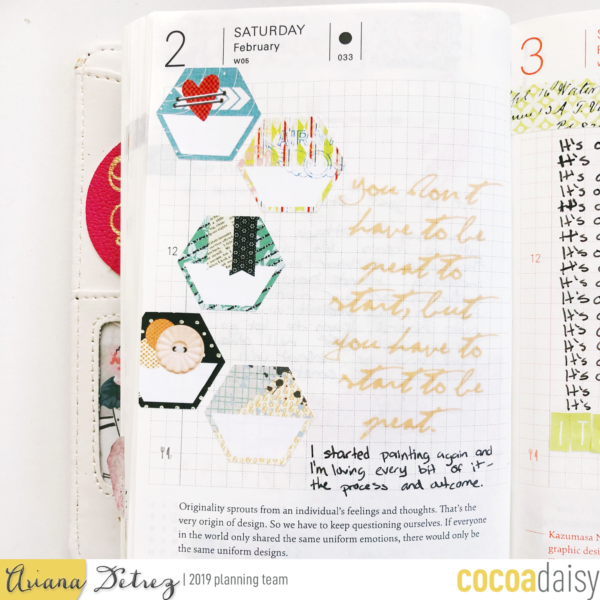 2
SATURDAY
February
W05
033
you don't
have to be
great to
start, but
you have to
start to be
great.
12
I started painting again and
I'm loving every bit of it-
the process and outcome.
Originality sprouts from an individual's feelings and thoughts. That's the
very origin of design. So we have to keep questioning ourselves. If everyone
in the world only shared the same uniform emotions, there would only be
the same uniform designs.
3
S
It's
It's
It's
It's
It's
It's
It's
It's
It's
12
It's
It's
It's
It's
It's
It's
It's
It's
It's
Kazumasa N
graphic desi
Ariana Détrez | 2019 planning team
cocoadaisy